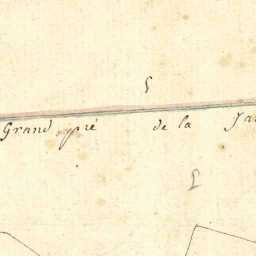 Grand pré de la